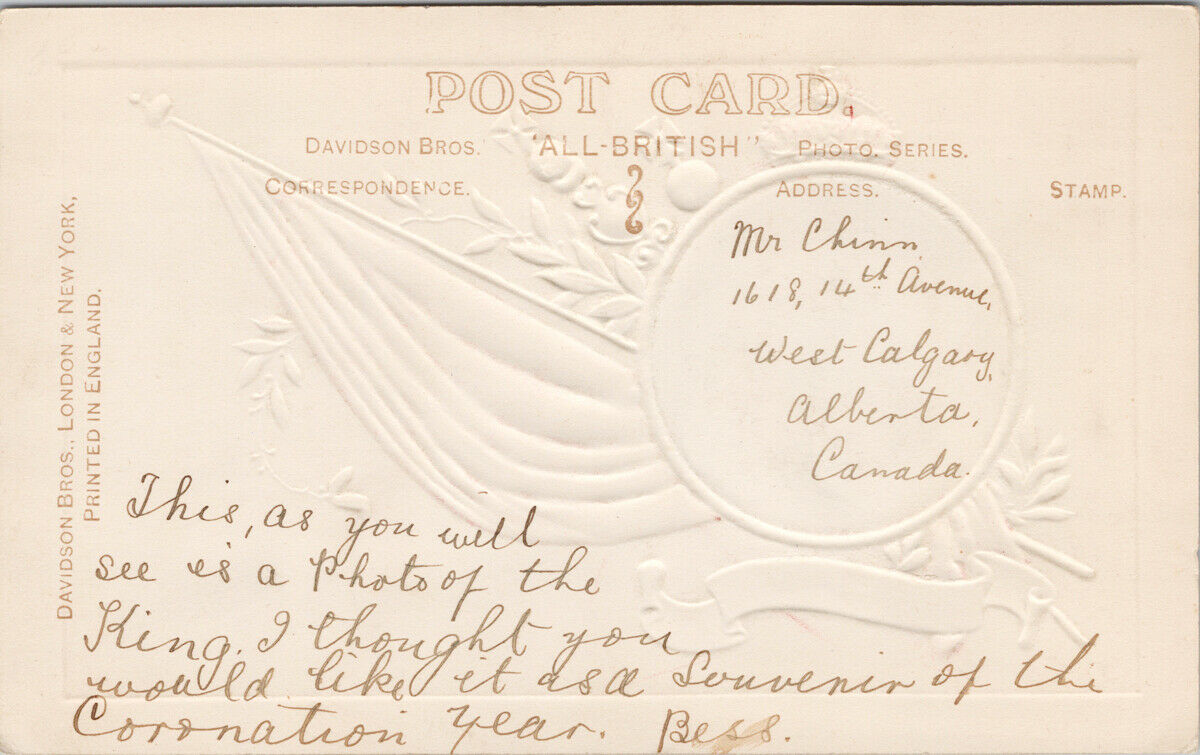 POST CARD.
DAVIDSON BROS. "ALL-BRITISH" PHOTO. SERIES.
CORRESPONDENCE. ADDRESS. STAMP.
DAVIDSON BROS., LONDON & NEW YORK,
PRINTED IN ENGLAND.
Mr Chinn
1618, 14th Avenue,
West Calgary,
Alberta,
Canada.
This, as you will
see is a Photo of the
King. I thought you
would like it as a Souvenir of the
Coronation Year. Bess.